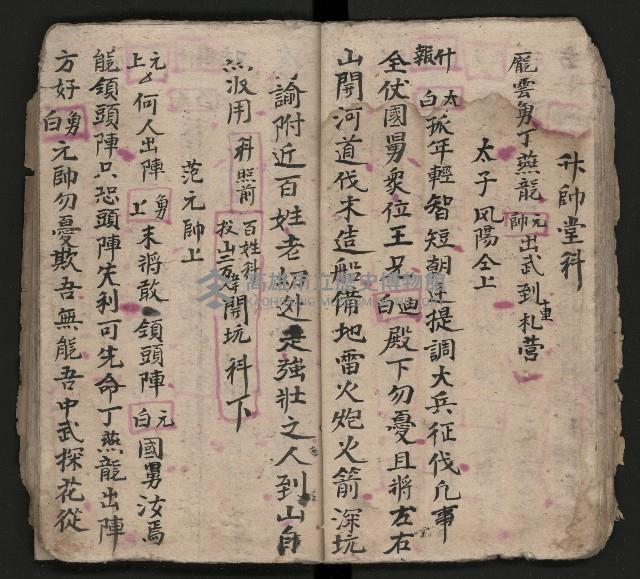 升帥堂科
太子凤陽仝上
龎雲勇丁燕龍元帥出武到札营
重
什報太白孤年輕智短朝廷提調大兵征伐凡事
全仗國舅眾位王兄迪白殿下勿憂且將左右
山開河道伐木造船備地雷火炮火箭深坑
諭附近百姓老幼外走強壯之人到山自
照前
范元帥上
元上何人出陣勇上末將敢領頭陣元白國舅汝焉
能領頭陣只恐頭陣失利可先命丁燕龍出陣
方好勇白元帥勿憂欺吾無能吾中武探花從
高雄市立歷史博物館
KAOHSIUNG MUSEUM OF HISTORY